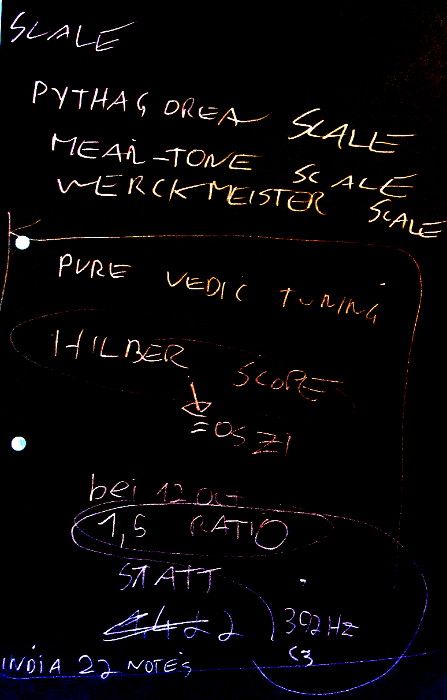 SCALE
PYTHAGOREA SCALE
MEAN-TONE SCALE
WERCKMEISTER SCALE
PURE VEDIC TUNING
HILBER SCOPE
=OSZI
bei 12 OCT
1,5 RATIO
STATT
392 HZ
INDIA 22 NOTES